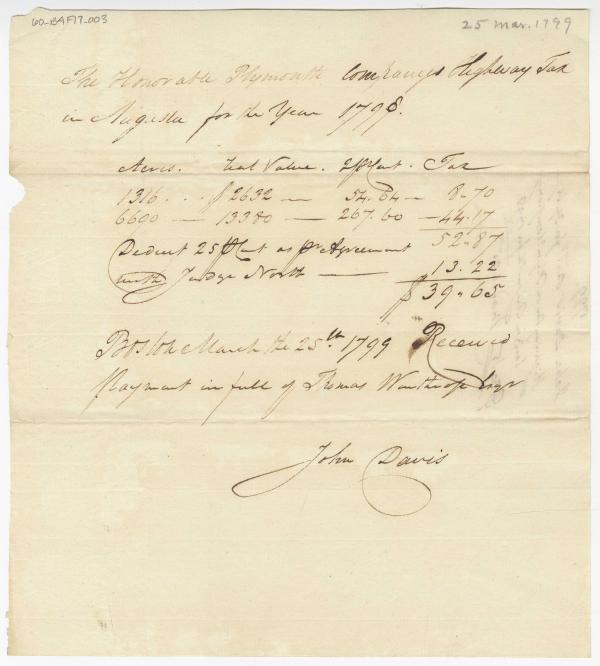 60-B4F17-003
25 Mar. 1799
The Honorable Plymouth Companys Highway Tax
in Augusta for the Year 1798.
Acres. Real Value. 2 pr Cent. Tax
1316 . . . $ 2632 — 54.64 — 8.70
6600 — 13380 — 267.60 — 44.17
52.87
Deduct 25 pr Cent as pr Agreement
with Judge North — 13.22
$ 39.65
Boston March the 25th 1799 Received
Payment in full of Thomas Winthrop Esqr
John Davis